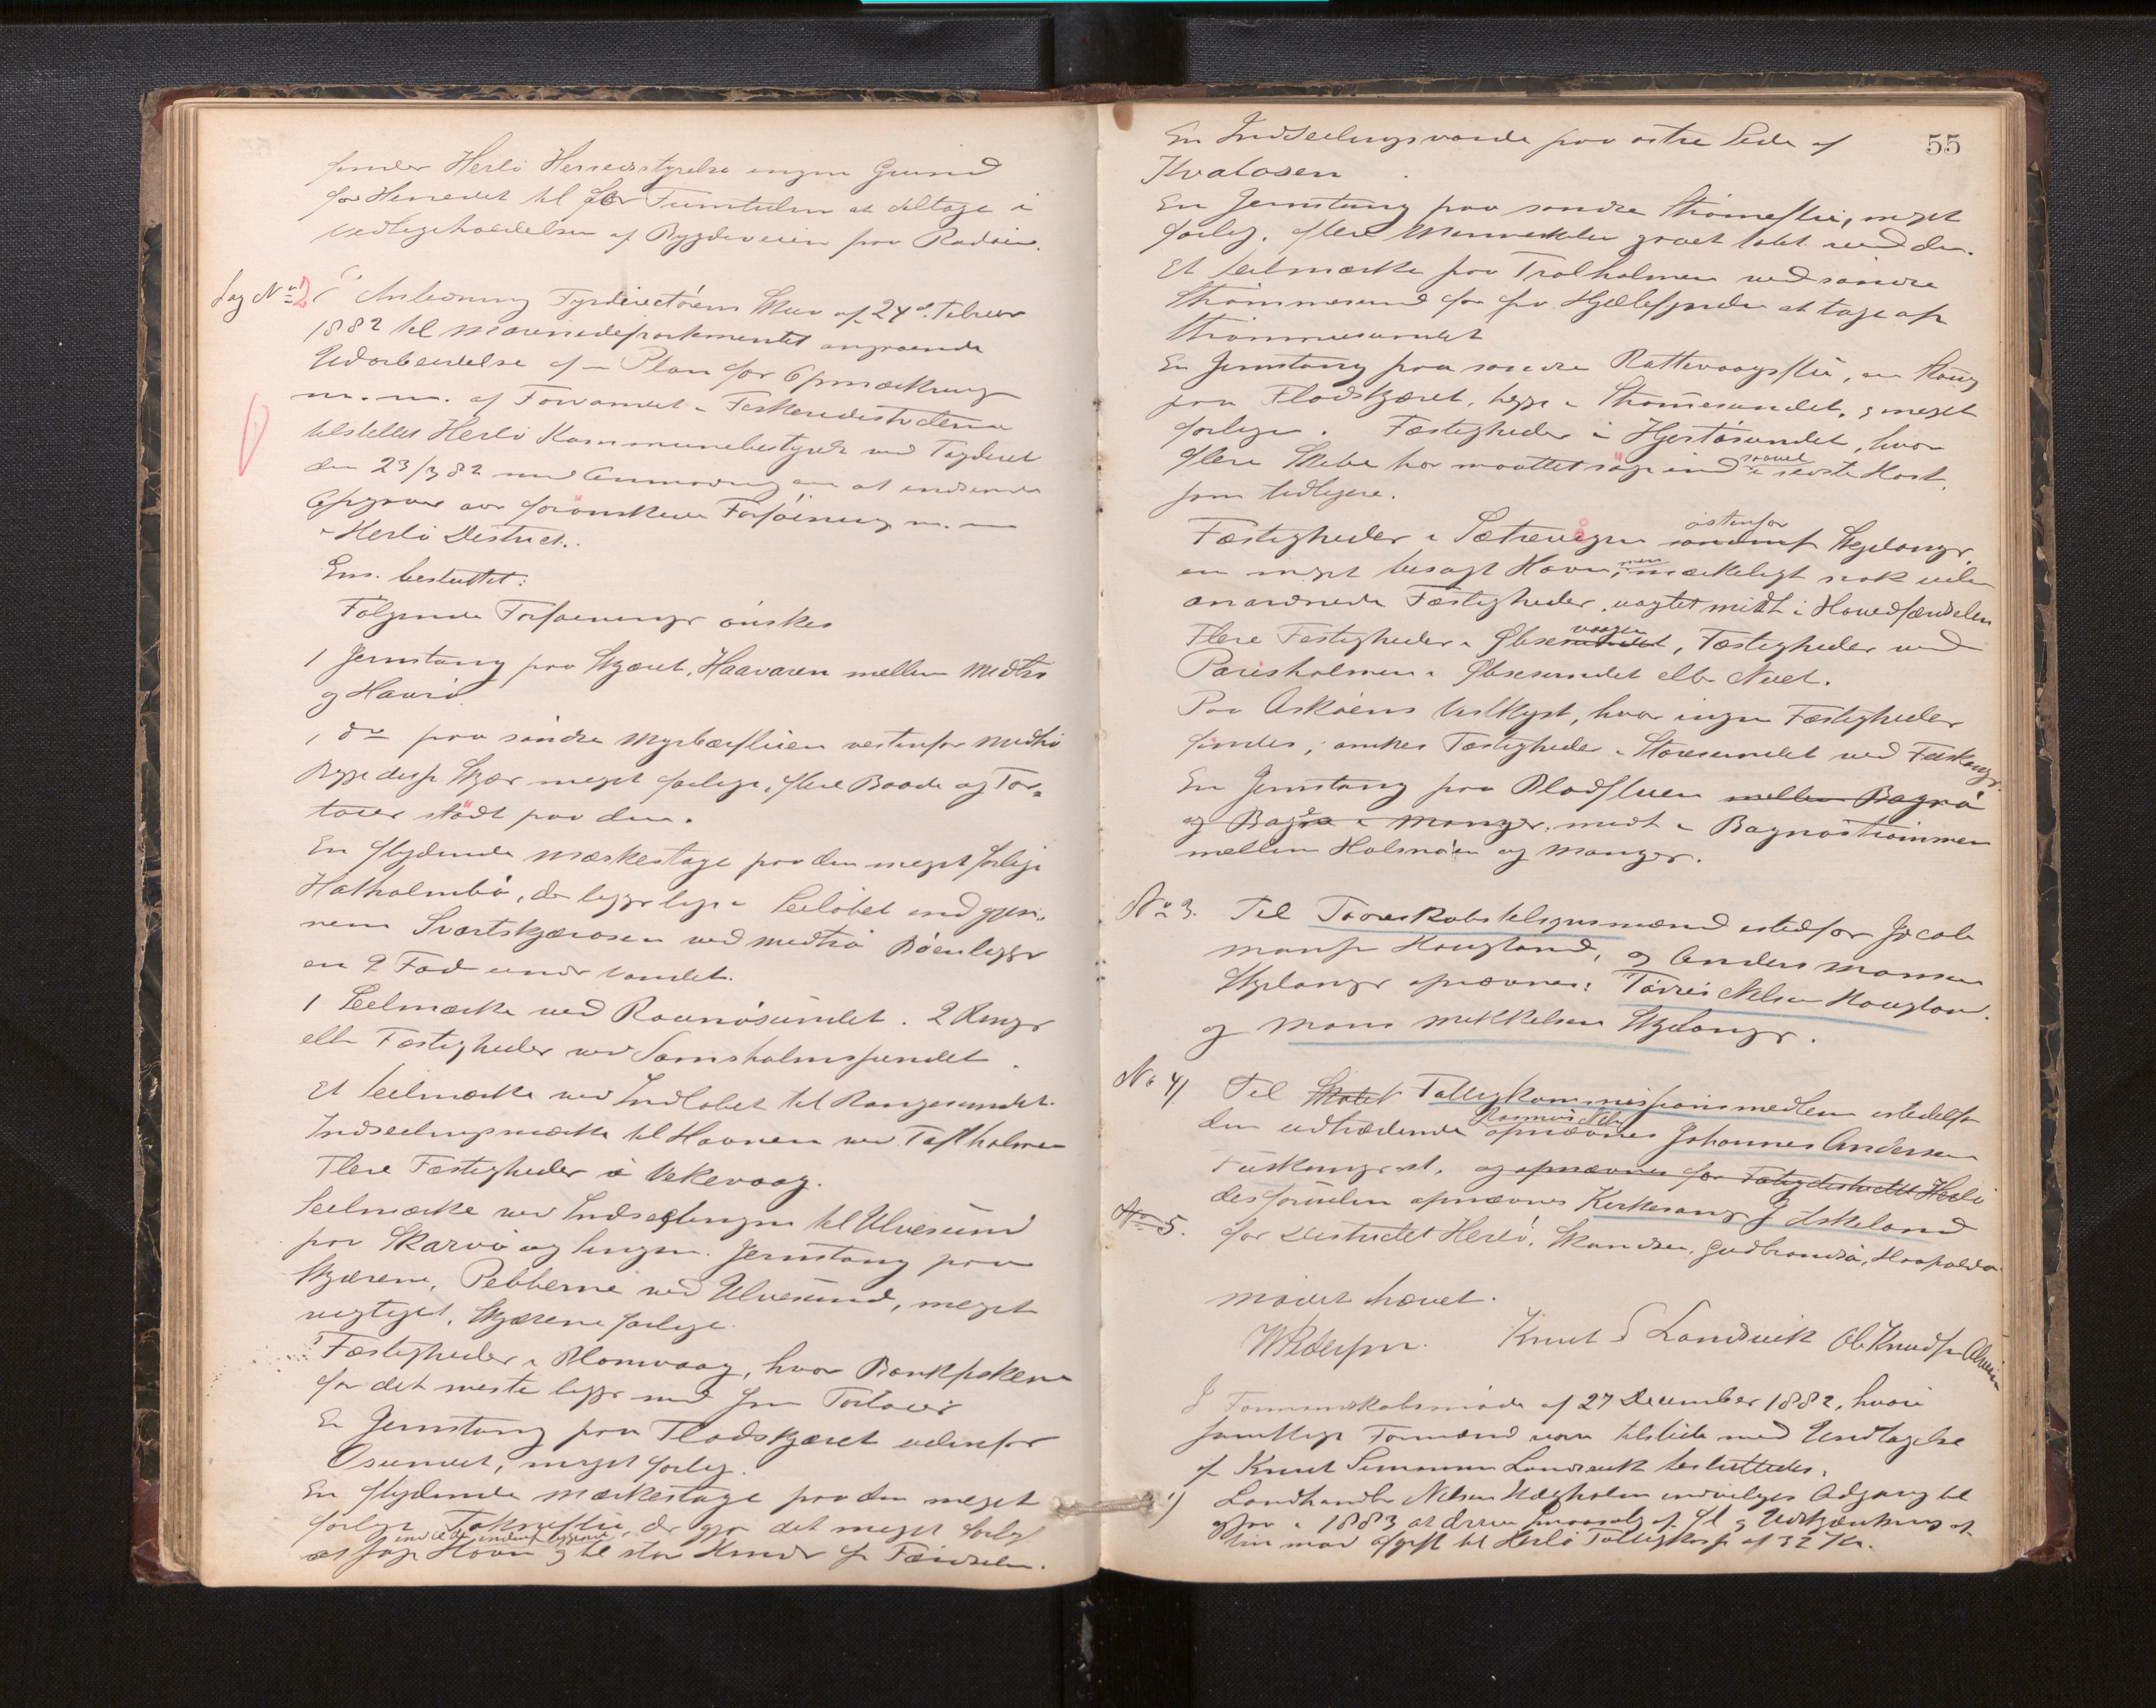 finder Herlö Herredsstyrelse ingen Grund
for Herredet til for Fremtiden at deltage i
Vedligeholdelsen af Bygdeveien paa Radöen.
Sag No 2 I Anledning Fyrdirectörens Skriv af 24de Februar
1882 til Marinedepartementet angaaende
Udarbeidelse af en Plan for Opmærkning
m. m. af Farvandet i Fiskeridistricterne
tilstillet Herlö Kommunebestyrelse med Tegderet
den 23/3 82 med Anmodning om at indsende
Opgaver over forönskede Forföininger m. m
i Herlö District.
Ens. besluttet:
Fölgende Forföininger önskes
1 Jernstang paa Skjæret, Haavaren mellem Midtö
og Hanö
1 do paa söndre Myrbærfluen vestenfor Midtö
Begge disse Skjær meget farlige, flere Baade og Far-
töier stödt paa dem.
En flydende Mærkestage paa den meget farlige
Hatholmbö, der ligger lige i Seilöbet ind gjen-
nem Svartskjærosen ved Midtö Böen ligger
en 9 Fod under Vandet.
1 Seilmærke ved Ravnösundet. 2 Ringer
eller Fæstigheder ved Samsholmsundet.
Et Seilmærke ved Indlöbet til Rongesundet.
Indseilingsmærke til Havnen ved Toftholmen
Flere Fæstigheder i Vekevaag.
Seilmærke ved Indseilingen til Ulvesund
paa Skarvö og Lingen. Jernstang paa
Skjærene, Pebberne ved Ulvesund, meget
vigtigst, Skjærene farlige.
Fæstigheder i Blomvaag, hvor Bankfiskere
for det meste ligger med sine Fartöier
En Jernstang paa Fladskjæret udenfor
Osundet, meget farlig.
En flydende Mærkestage paa den meget
farlige Tokneflu, der gjör det meget farligt
ind til den indenfor liggende
at söge Havn og til stor Hinder for Færdselen.
55
En Indseilingsvarde paa östre Side af
Kvalosen
En Jernstang paa söndre Strömeflu, meget
farlig, flere Menneskeliv gaaet tabt ved den.
Et Seilmærke paa Tralholmen ved söndre
Strömmesund for fra Hjeltefjorden at tage af
Strömmesundet
En Jernstang paa söndre Rattevaagsflu, en Stang
paa Flodskjæret, begge i Strömesundet, og meget
farlige. Fæstigheder i Hjertösundet, hvor
flere Skibe har maattet söge ind saavel i sidste Höst
som tidligere.
Fæstigheder i Sætrevågen söndenf östenfor Skjelanger,
en meget besögt Havn, men mærkeligt nok uden
anordnede Fæstigheder, uagtet midt i Hovedfærdselen
Flere Fæstigheder i Øbsesundet vaagen, Fæstigheder ved
Parisholmen i Øbsesundet eller Nuet.
Paa Asköens Vestkyst, hvor ingen Fæstigheder
findes, önskes Fæstigheder i Storesundet ved Fuskanger.
En Jernstang paa Bladfluen mellem Bognö
og Bog i Manger, midt i Bognöströmmen
mellem Holsnöen og Manger.
No 3. Til Töreskabstilsynsmænd istedfor Jacob
Mons Hougland, og Anders Monsen
Skjelanger opnævnes: Törres Nilsen Hougland.
og Mons Mikkelsen Skjelanger.
No 4) Til Skole Fattigkommissionsmedlem istedetfor
den udtrædende Rasmus Nils opnævnes Johannes Andersen
Fuskanger st. og opnævnes for Fattigdistrictet Herlö
No 5. desforuden opnævnes Kirkesanger J Eskeland
for Districtet Herlö, Skandsen, Gudbrandsö, Haapoldö
Mödet hævet.
WPedersen. Knut S Landsvik Ole Knudsen
I Formandskabsmöde af 27 December 1882, hvori
samtlige Formænd var tilstede med Undtagelse
af Knut Simonsen Landsvik besluttedes,
1) Landhandler Nilsen Hægholm indvilges Adgang til
i 1883 at drive Smaasalg af Öl og Udskjænkning af
Vin mod Afgift til Herlö Fattigkasse af 32 Kr.